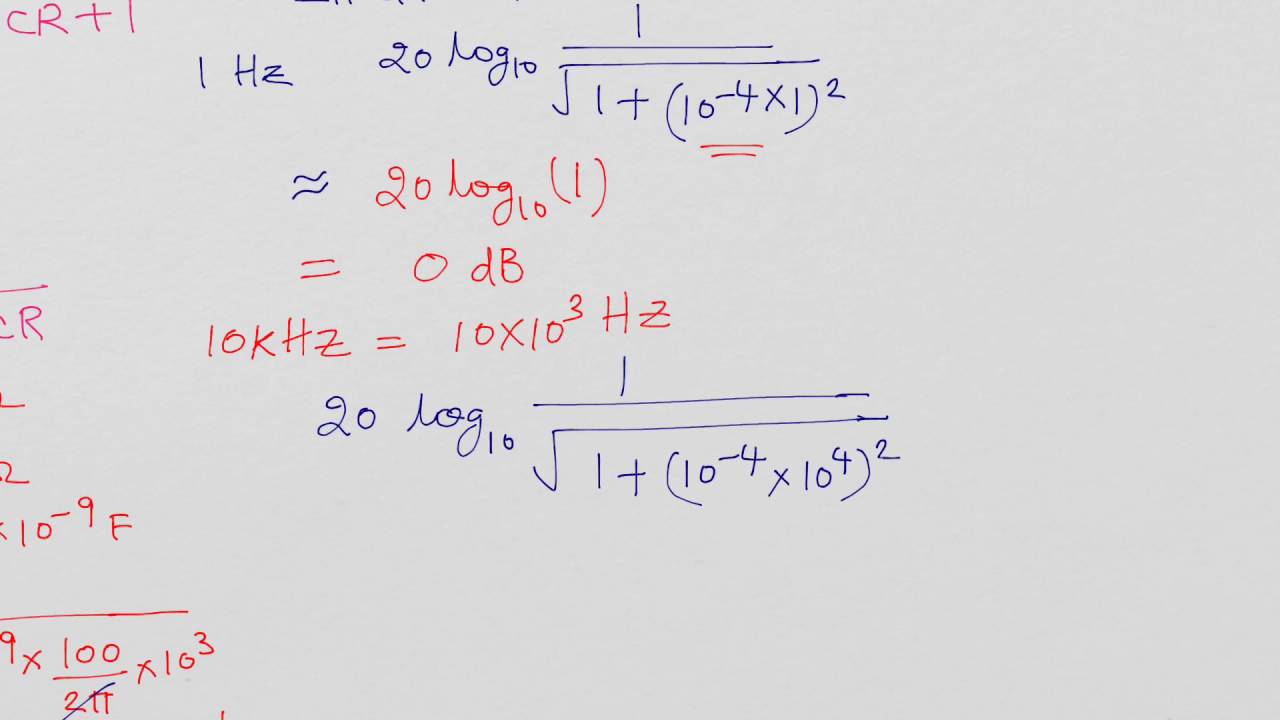 CR+1
1 Hz 20 log₁₀ 1/√(1+(10⁻⁴×1)²)
≈ 20 log₁₀(1)
= 0 dB
CR
10KHz = 10×10³ Hz
20 log₁₀ 1/√(1+(10⁻⁴×10⁴)²)
Ω
×10⁻⁹ F
9 × 100/2π × 10³